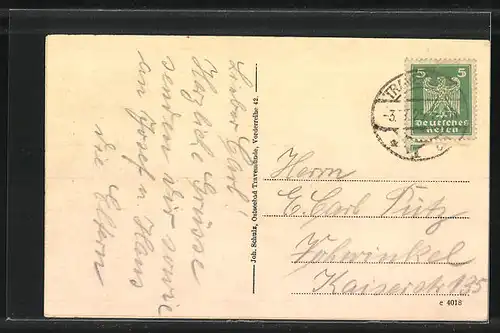 Lieber Carl!
Herzliche Grüsse
senden Dir sowie
an Josef u. Hans
die Eltern
Joh. Schulz, Ostseebad Travemünde, Vorderreihe 42.
5 5
Deutsches
Reich
TRAV
-3.
Herrn
E. Carl Pütz
Vohwinkel
Kaiserstr 135
c 4018